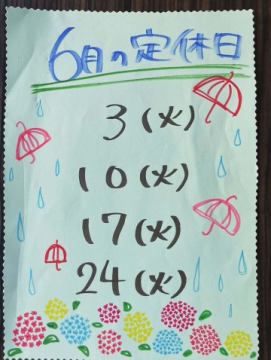 6月の定休日
3(火)
10(火)
17(火)
24(火)